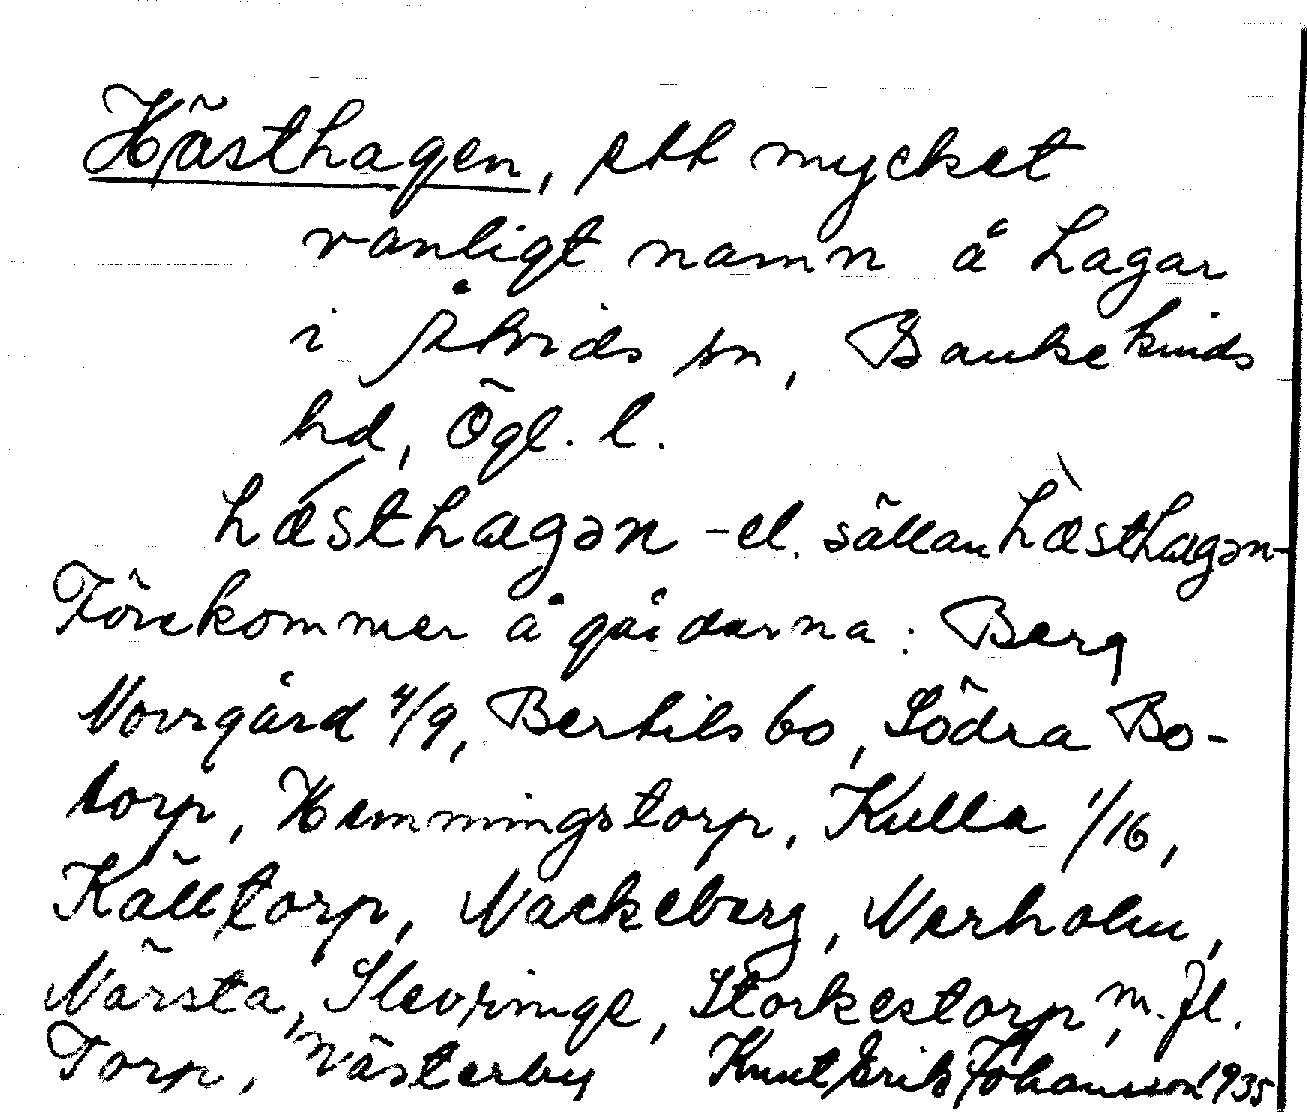 Hästhagen, ett mycket
vanligt namn å hagar
i Åtvids sn, Bankekinds
hd, Ögl. l.
hǽsthagən – el. sällan hæ̀sthagən –
Förekommer å gårdarna: Berg
Norrgård 4/9, Bertilsbo, Södra Bo-
torp, Hemmingstorp, Kulla 1/16,
Källtorp, Nackeberg, Nerholm,
Närsta, Slevringe, Storkestorp, m. fl.
Torp, Västerby Knut Erik Johansson 1935